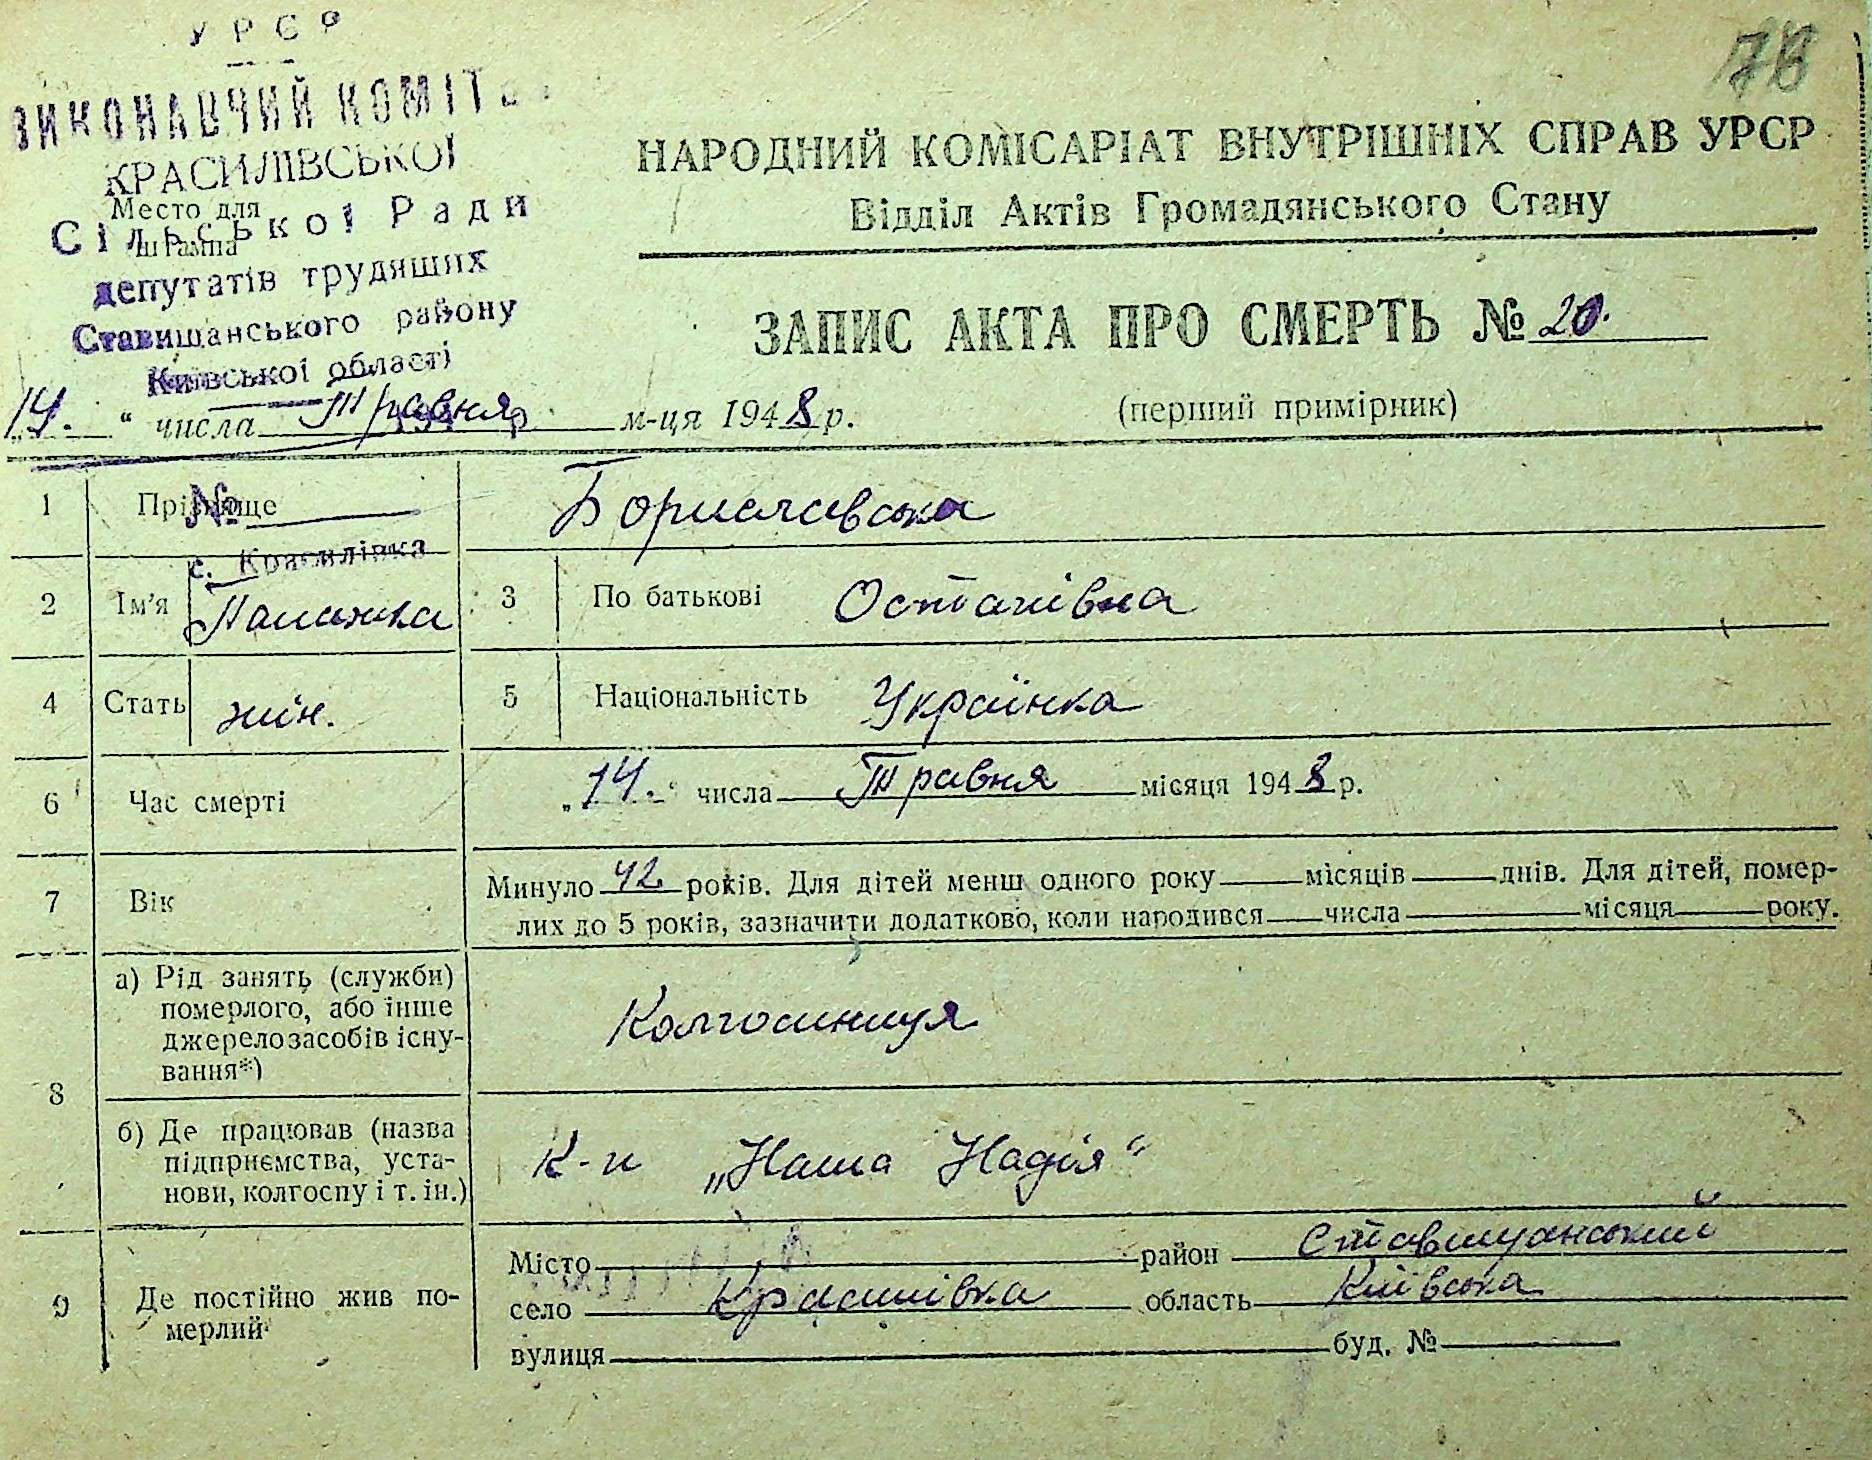 УРСР
ВИКОНАВЧИЙ КОМІТЕТ
КРАСИЛІВСЬКОЇ
Місто для
штампа
Сільської Ради
депутатів трудящих
Ставищанського району
Київської області
78
НАРОДНИЙ КОМІСАРІАТ ВНУТРІШНІХ СПРАВ УРСР
Відділ Актів Громадянського Стану
ЗАПИС АКТА ПРО СМЕРТЬ № 20.
„14.“ числа Травня м-ця 1948 р.
(перший примірник)
1 Прізвище Бориславська
№
с. Красилівка
2 Ім'я Палажка 3 По батькові Остапівна
4 Стать жін. 5 Національність Українка
6 Час смерті „14.“ числа Травня місяця 1948 р.
7 Вік Минуло 42 років. Для дітей менш одного року місяців днів. Для дітей, помер-
лих до 5 років, зазначити додатково, коли народився числа місяця року.
8 а) Рід занять (служби)
померлого, або інше
джерело засобів існу-
вання*)
Колгоспниця
б) Де працював (назва
підприємства, уста-
нови, колгоспу і т. ін.)
К-п „Наша Надія“
9 Де постійно жив по-
мерлий
Місто район Ставищанський
село Красилівка область Київська
вулиця буд. №